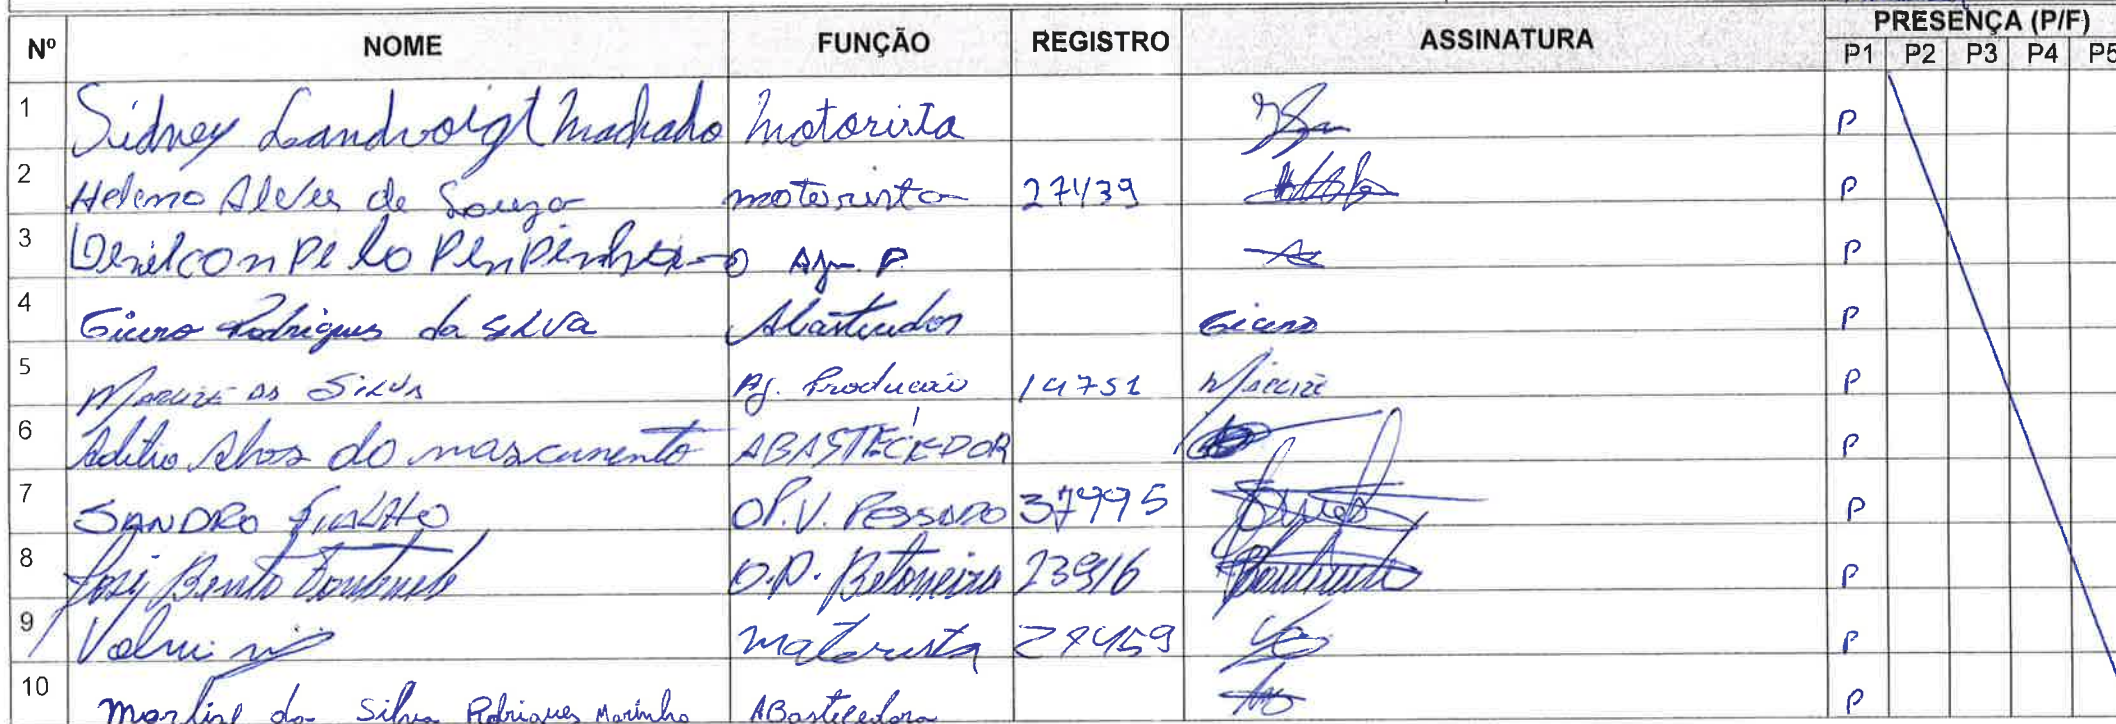 Nº NOME FUNÇÃO REGISTRO ASSINATURA PRESENÇA (P/F)
P1 P2 P3 P4 P5
1 Sidney Landvoigt Machado Motorista P
2 Heleno Alves de Souza motorista 27439 P
3 P
4 Cicero Rodrigues da SILVA Abastecedor Cicero P
5 da SILVA Aj. Producaio 14751 P
6 do nascimento ABASTECEDOR P
7 SANDRO FIALHO OP. V. PESSADO 37995 P
8 José Bento O.P. Betoneira 23916 P
9 Valmi motorista 27459 P
10 da Silva Rodrigues Marinho ABastecedora P